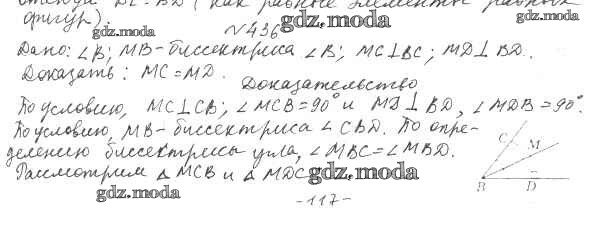 отсюда BC=BD (как равные элементы равных
фигур).
gdz.moda
№436
gdz.moda
Дано: ∠B; MB-биссектриса ∠B; MC⊥BC; MD⊥BD.
Доказать: MC=MD.
gdz.moda
Доказательство
По условию, MC⊥CB; ∠MCB=90° и MD⊥BD, ∠MDB=90°.
По условию, MB-биссектриса ∠CBD. По опре-
делению биссектрисы угла, ∠MBC=∠MBD.
Рассмотрим △MCB и △MDC
gdz.moda
gdz.moda
C M
B D
-117-